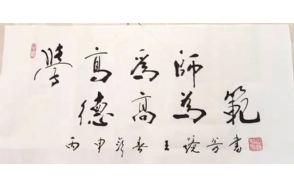 學高爲師
德高為範
丙申 春 王 芳書